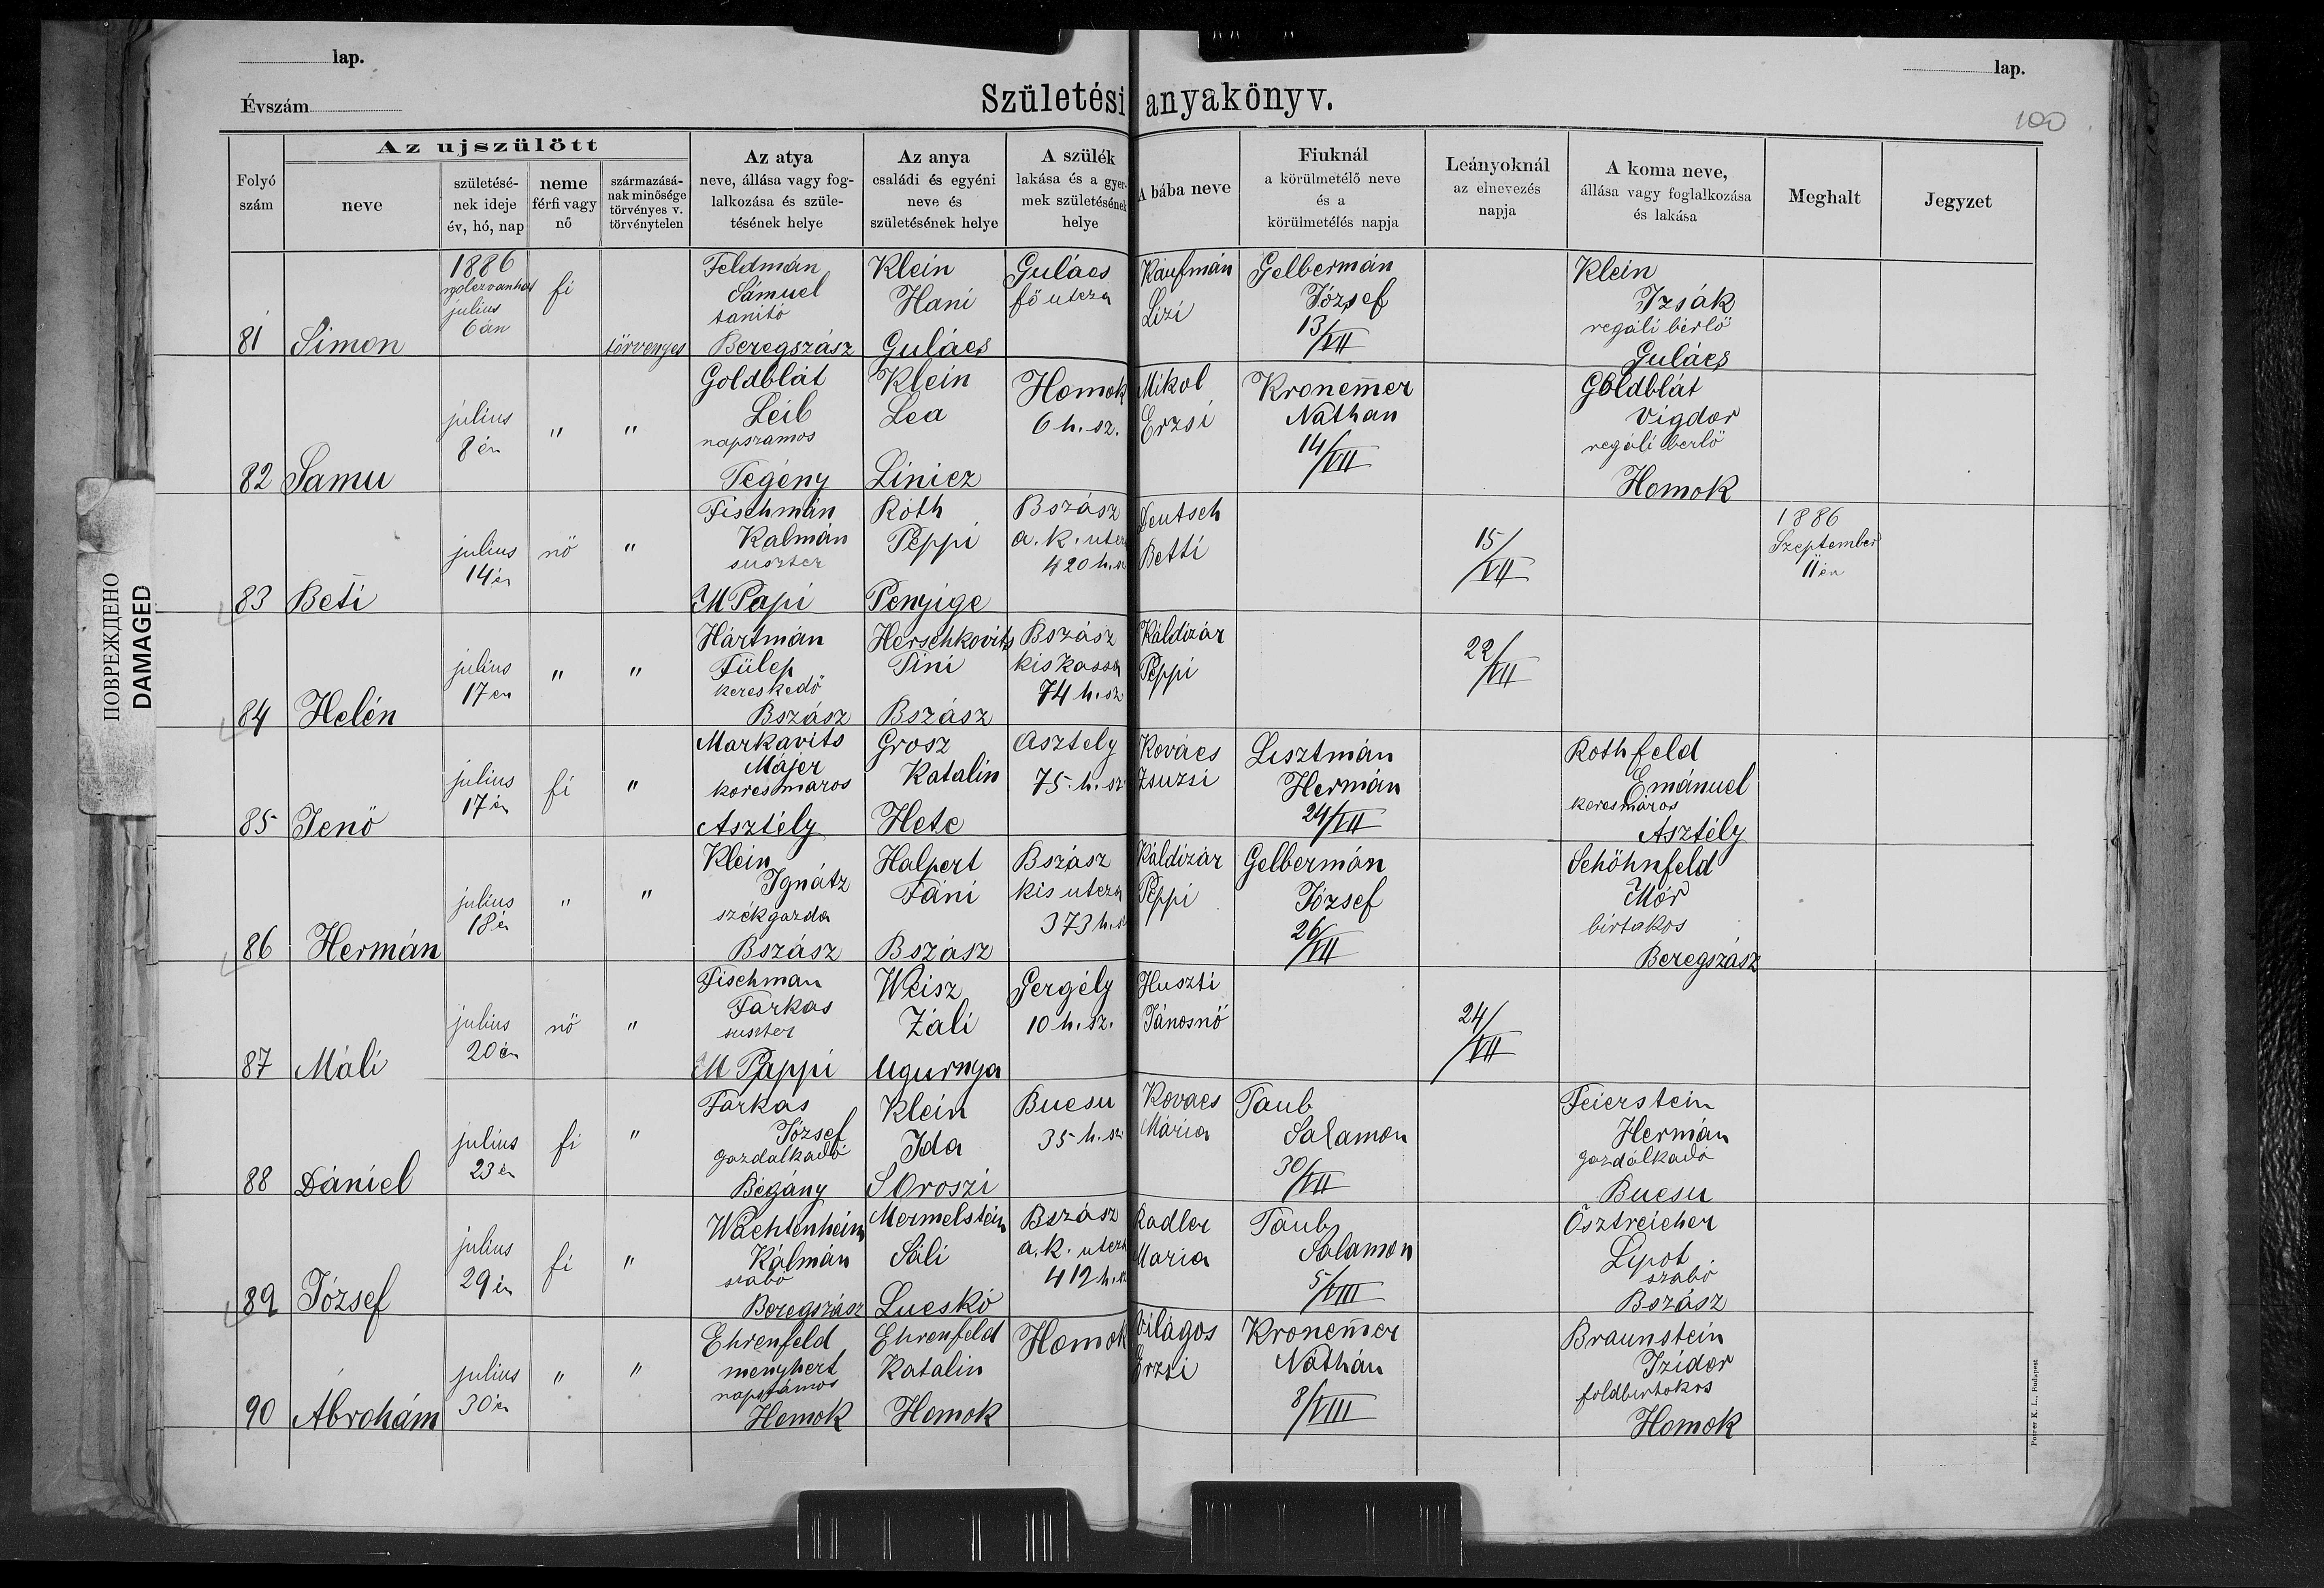 lap.
lap.
Évszám
Születési anyakönyv.
100
Folyó szám
Az ujszülött
neve
születésé-
nek ideje
év, hó, nap
neme
férfi vagy
nő
származásá-
nak minősége
törvényes v.
törvénytelen
Az atya
neve, állása vagy fog-
lalkozása és szüle-
tésének helye
Az anya
családi és egyéni
neve és
születésének helye
A szülék
lakása és a gyer-
mek születésének
helye
A bába neve
Fiuknál
a körülmetélő neve
és a
körülmetélés napja
Leányoknál
az elnevezés
napja
A koma neve,
állása vagy foglalkozása
és lakása
Meghalt
Jegyzet
81 Simon
1886
julius
6án
fi
törvenyes
Feldmán
Sámuel
tanitó
Beregszász
Klein
Hani
Gulács
Gulács
fő utcza
Kaufmán
Lizi
Gelbermán
József
13/VII
Klein
Izsák
regáli bérlő
Gulács
82 Samu
julius
8én
"
"
Goldblát
Leib
napszamos
Tegény
Klein
Lea
Linicz
Homok
6 h. sz.
Mikol
Erzsi
Kronem̄er
Nathan
14/VII
Goldblát
Vigdor
regáli berlő
Homok
83 Beti
julius
14én
nő
"
Fischmán
Kalmán
suszter
M Papi
Róth
Peppi
Penyige
Bszász
a. k. utcza
420 h. sz
Deutsch
Betti
15/VII
1886
Szeptember
11én
84 Helén
julius
17én
"
"
Hártmán
Fülep
kereskedő
Bszász
Herschkovits
Tini
Bszász
Bszász
kiskassa
74 h. sz
Káldizár
Peppi
22/VII
85 Jenő
julius
17én
fi
"
Markavits
Májer
korcsmáros
Asztély
Grosz
Katalin
Hete
Asztely
75. h. sz
Kovács
Zsuzsi
Lisztmán
Hermán
24/VII
Rothfeld
Emánuel
korcsmáros
Asztély
86 Hermán
julius
18én
"
"
Klein
Ignátz
székgazda
Bszász
Halpert
Fáni
Bszász
Bszász
kis utcza
373 h. sz
Káldizár
Peppi
Gelbermán
József
26/VII
Schöhnfeld
Mór
birtakos
Beregszász
87 Máli
julius
20án
nő
"
Fischman
Farkas
suszter
M Pappi
Weisz
Záli
Ugurnya
Gergély
10 h. sz.
Huszti
Jánosnő
24/VII
88 Dániel
julius
23én
fi
"
Farkas
József
gazdalkadó
Bégány
Klein
Ida
S Oroszi
Bucsu
35 h. sz
Kovacs
Mária
Taub
Salamon
30/VII
Feierstein
Hermán
gazdálkadó
Bucsu
89 József
julius
29én
fi
"
Wächtenheim
Kálmán
szabó
Beregszász
Mermelstein
Sáli
Lucskó
Bszász
a. k. utcza
412 h. sz
Radler
Maria
Taub
Salamon
5/VIII
Ösztreicher
Lipot
szabó
Bszász
90 Abrohám
julius
30án
"
"
Ehrenfeld
menyhert
napszámos
Homok
Ehrenfeld
Katalin
Homok
Homok
Világos
Erzsi
Kronem̄er
Náthán
8/VIII
Braunstein
Izidor
foldbirtokos
Homok
ПОВРЕЖДЕНО
DAMAGED